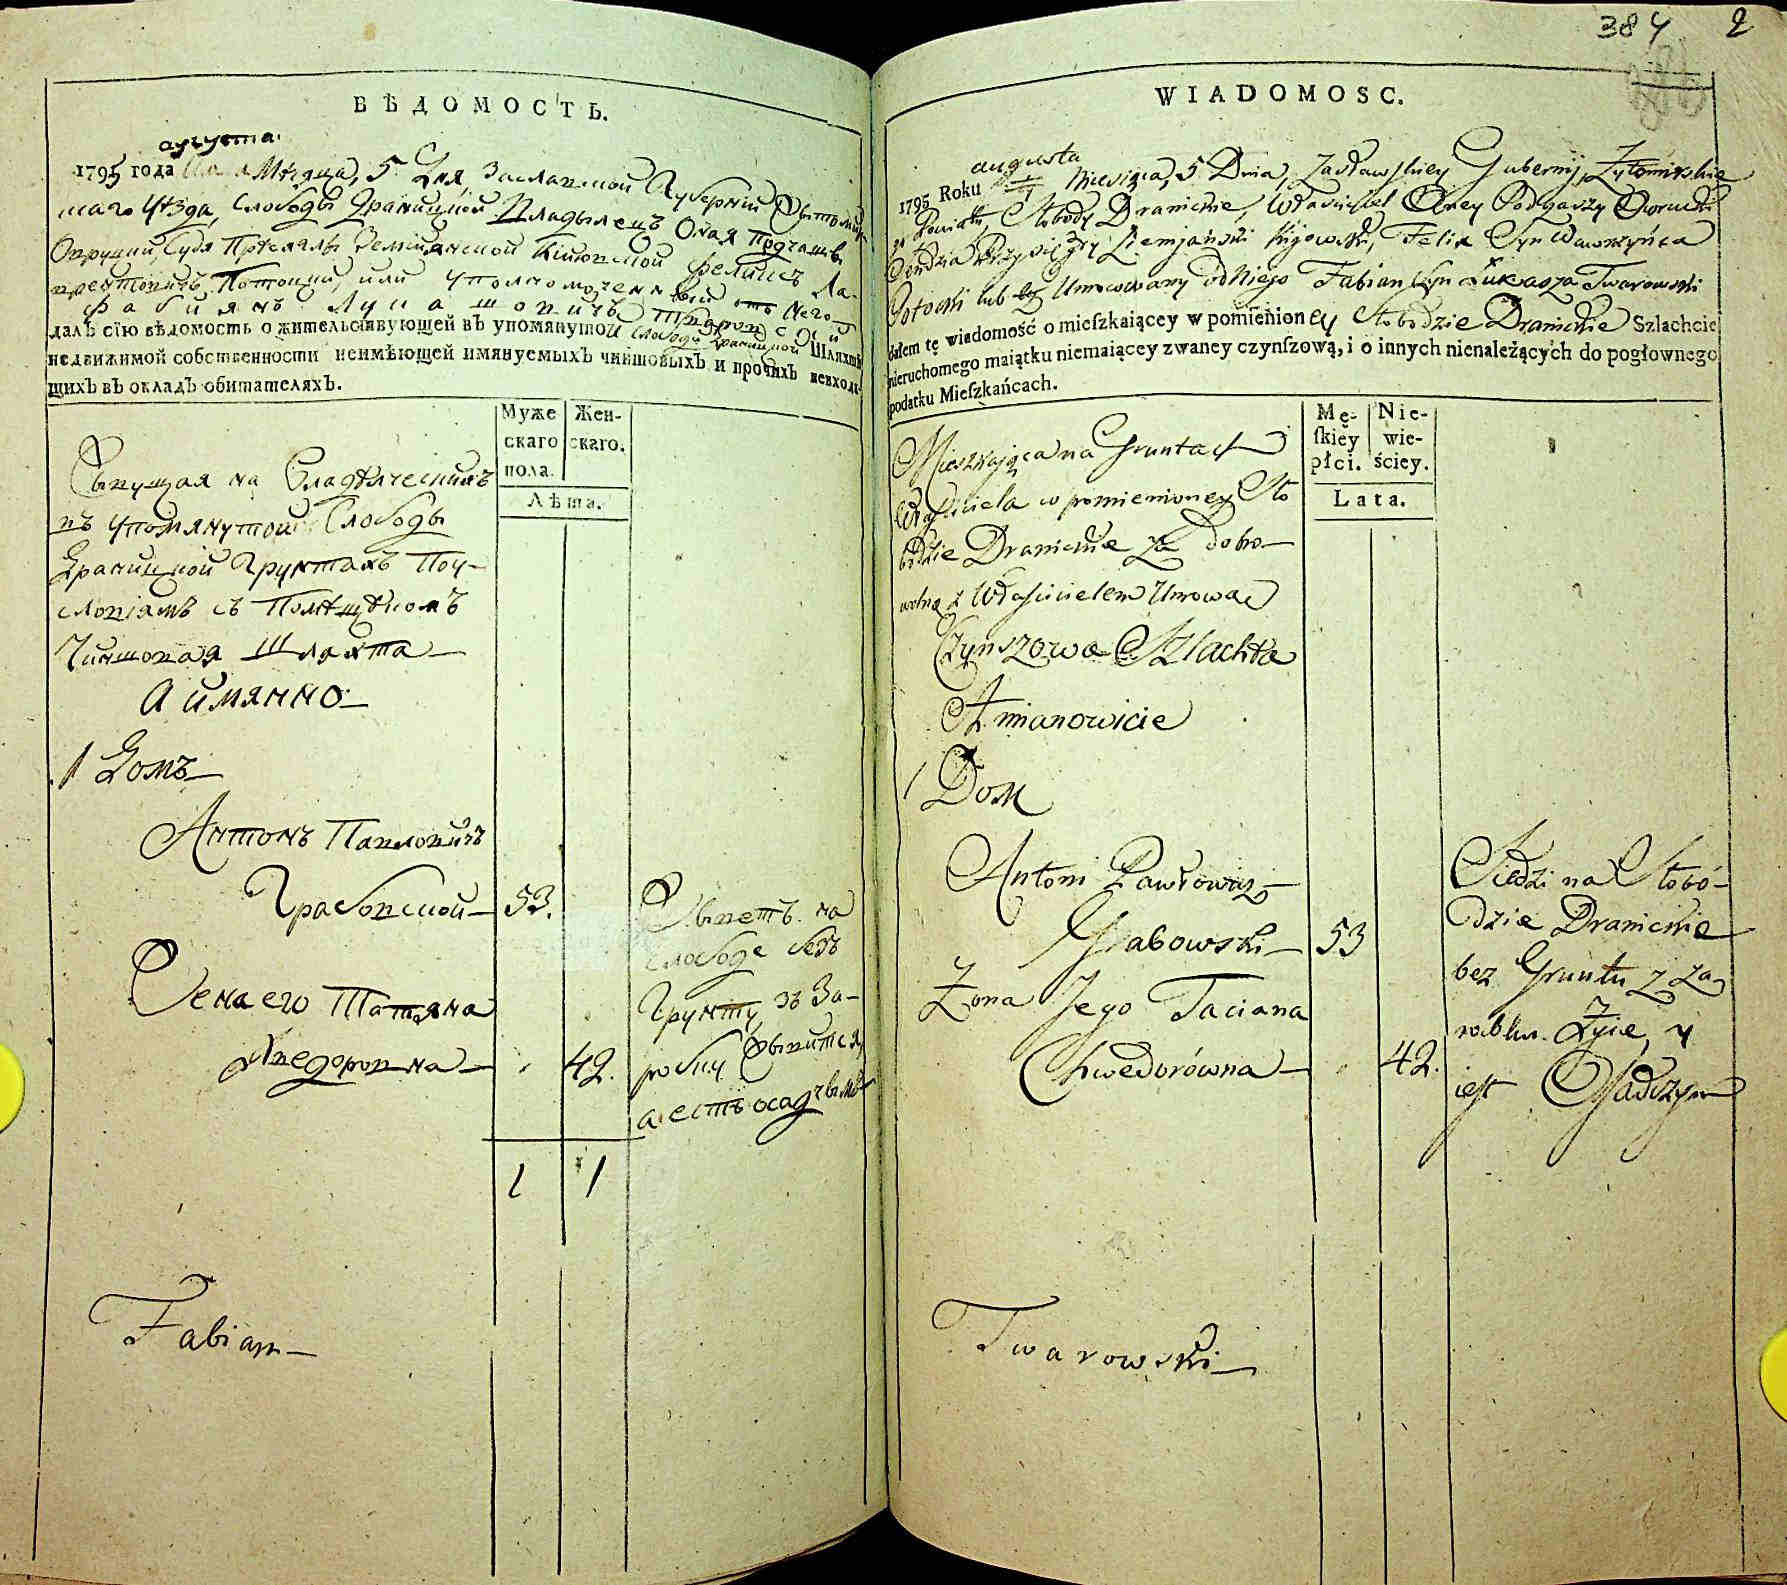 ВѢДОМОСТЬ.
августа
1795 года Мѣсяца, 5 Дня Заславской Губерніи Житомир
скаго Уѣзда, Слободы Драницкой Владѣлецъ Оная Подчашій
Овруцкій, Судя Присяглый Земмянской Кіювской Феликсъ Ла-
врентовичъ Потоцкій, или Уполномоченный отъ Него
Фабиянъ Лукашовичъ Тваровской
далъ сїю вѣдомость о жительствующей въ упомянутой Слободе Драницкой Шляхтѣ
недвижимой собственности неимѣющей имянуемыхъ чиншовыхъ и прочихъ невходя-
щихъ въ окладъ обитателяхъ.
Муже Жен-
скаго скаго.
пола.
Лѣта.
Живущая на Владѣлческихъ
въ упомянутой Слободы
Драницкой Грунтахъ По у-
словіямъ съ Помѣщикомъ
Чиншовая Шляхта
А имянно
1 Домъ
Антонъ Павловичъ
Грабовской 53.
Жена его Татяна
Хведоровна 42.
Живетъ на
слободе безъ
Грунту, зъ За-
робку Живится,
а естъ осадчымъ
1 1
Fabian
384 2
WIADOMOSC.
augusta
1795 Roku Miesiąca, 5 Dnia, Zasławskiey Gubernij, Żytomirskie
go Powiatu, Słobody Branickie, Właściciel Oney Podczaszy Owrucki
Sędzia Przysięgły Ziemjański Kijowski, Felix Syn Wawrzyńca
Potocki lub Umocowany od Niego Fabian Syn Łukasza Twarowski
dałem tę wiadomość o mieſzkaiącey w pomienioney Słobodzie Dranickie Szlachcie
nieruchomego maiątku niemaiącey zwaney czynſzową, i o innych nienależących do pogłownego
podatku Mieſzkańcach.
Mę- Nie-
ſkiey wie-
płci. ściey.
Lata.
Mieszkająca na Gruntach
Właściciela w pomienioney Sło
bodzie Dranickie za dobro-
wolną z Właścicielem Umową
Czynszowa Szlachta
A mianowicie
1 Dom
Antoni Pawłowicz
Grabowski 53
Żona Jego Taciana
Chwedorówna 42.
Siedzi na Słobo-
dzie Dranickie
bez Gruntu z Za
robku Żyie, y
iest Osadczym
Twarowski